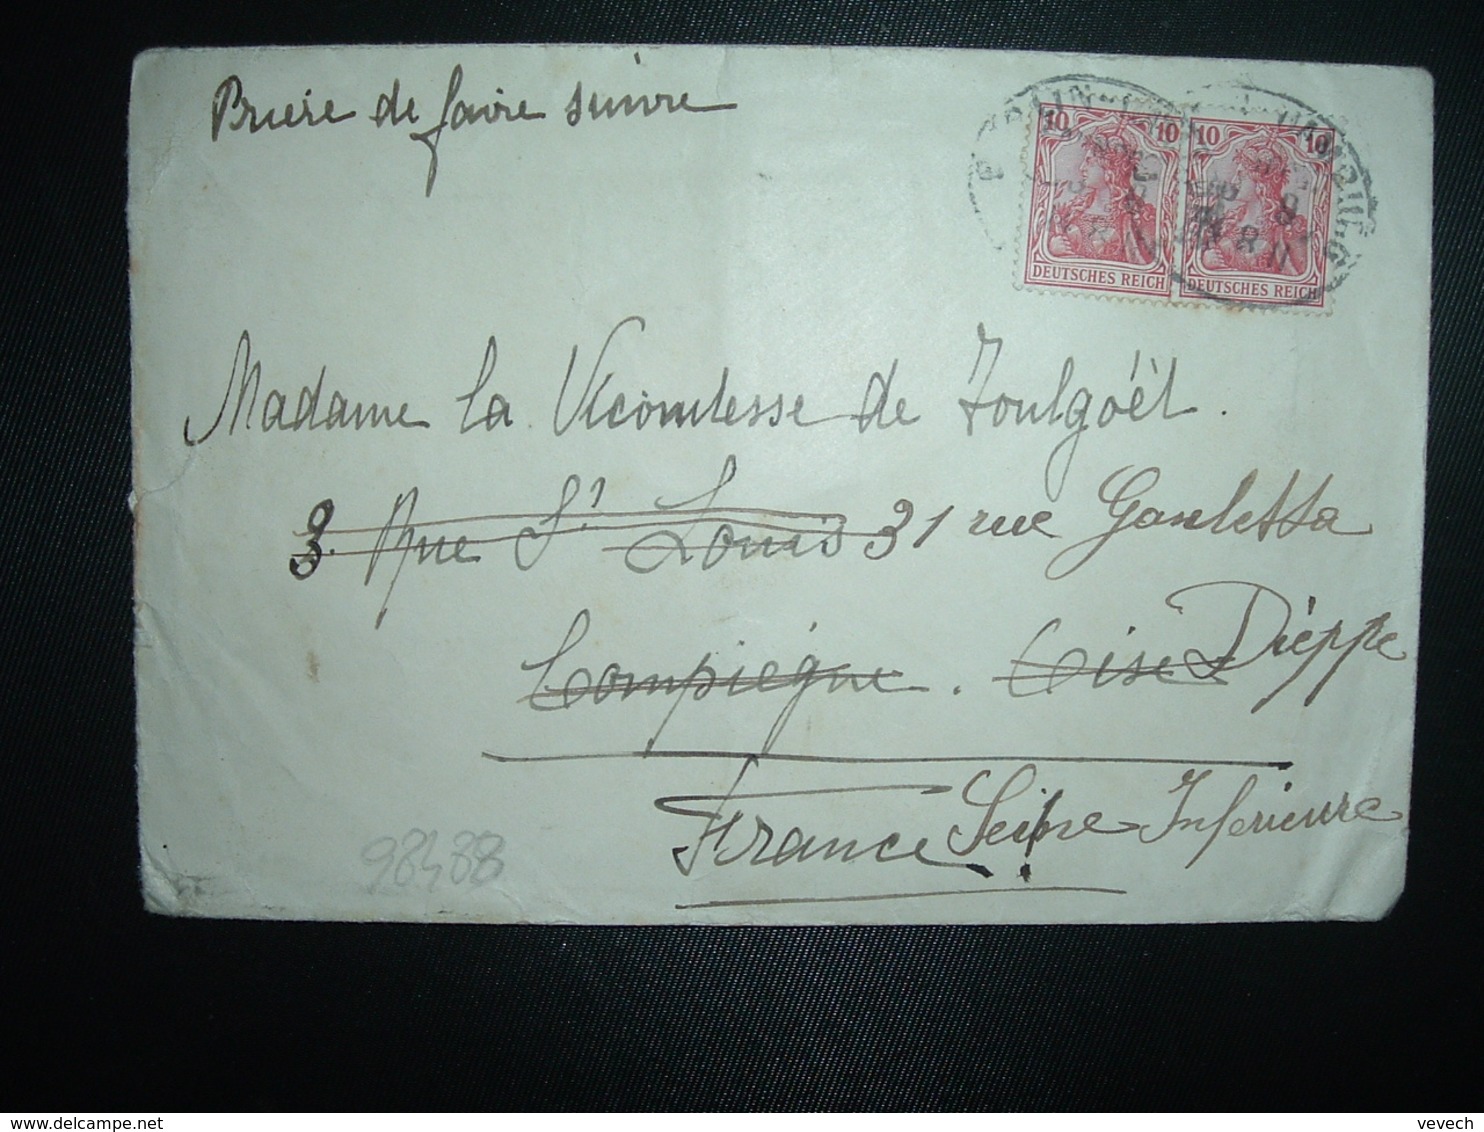 Prière de faire suivre
10 10 10 10
DEUTSCHES REICH DEUTSCHES REICH
Madame la Vicomtesse de Toulgoët.
3. Rue St Louis 31 rue Gambetta
Compiègne. Oise Dieppe
France Seine Inférieure
98488
vevech